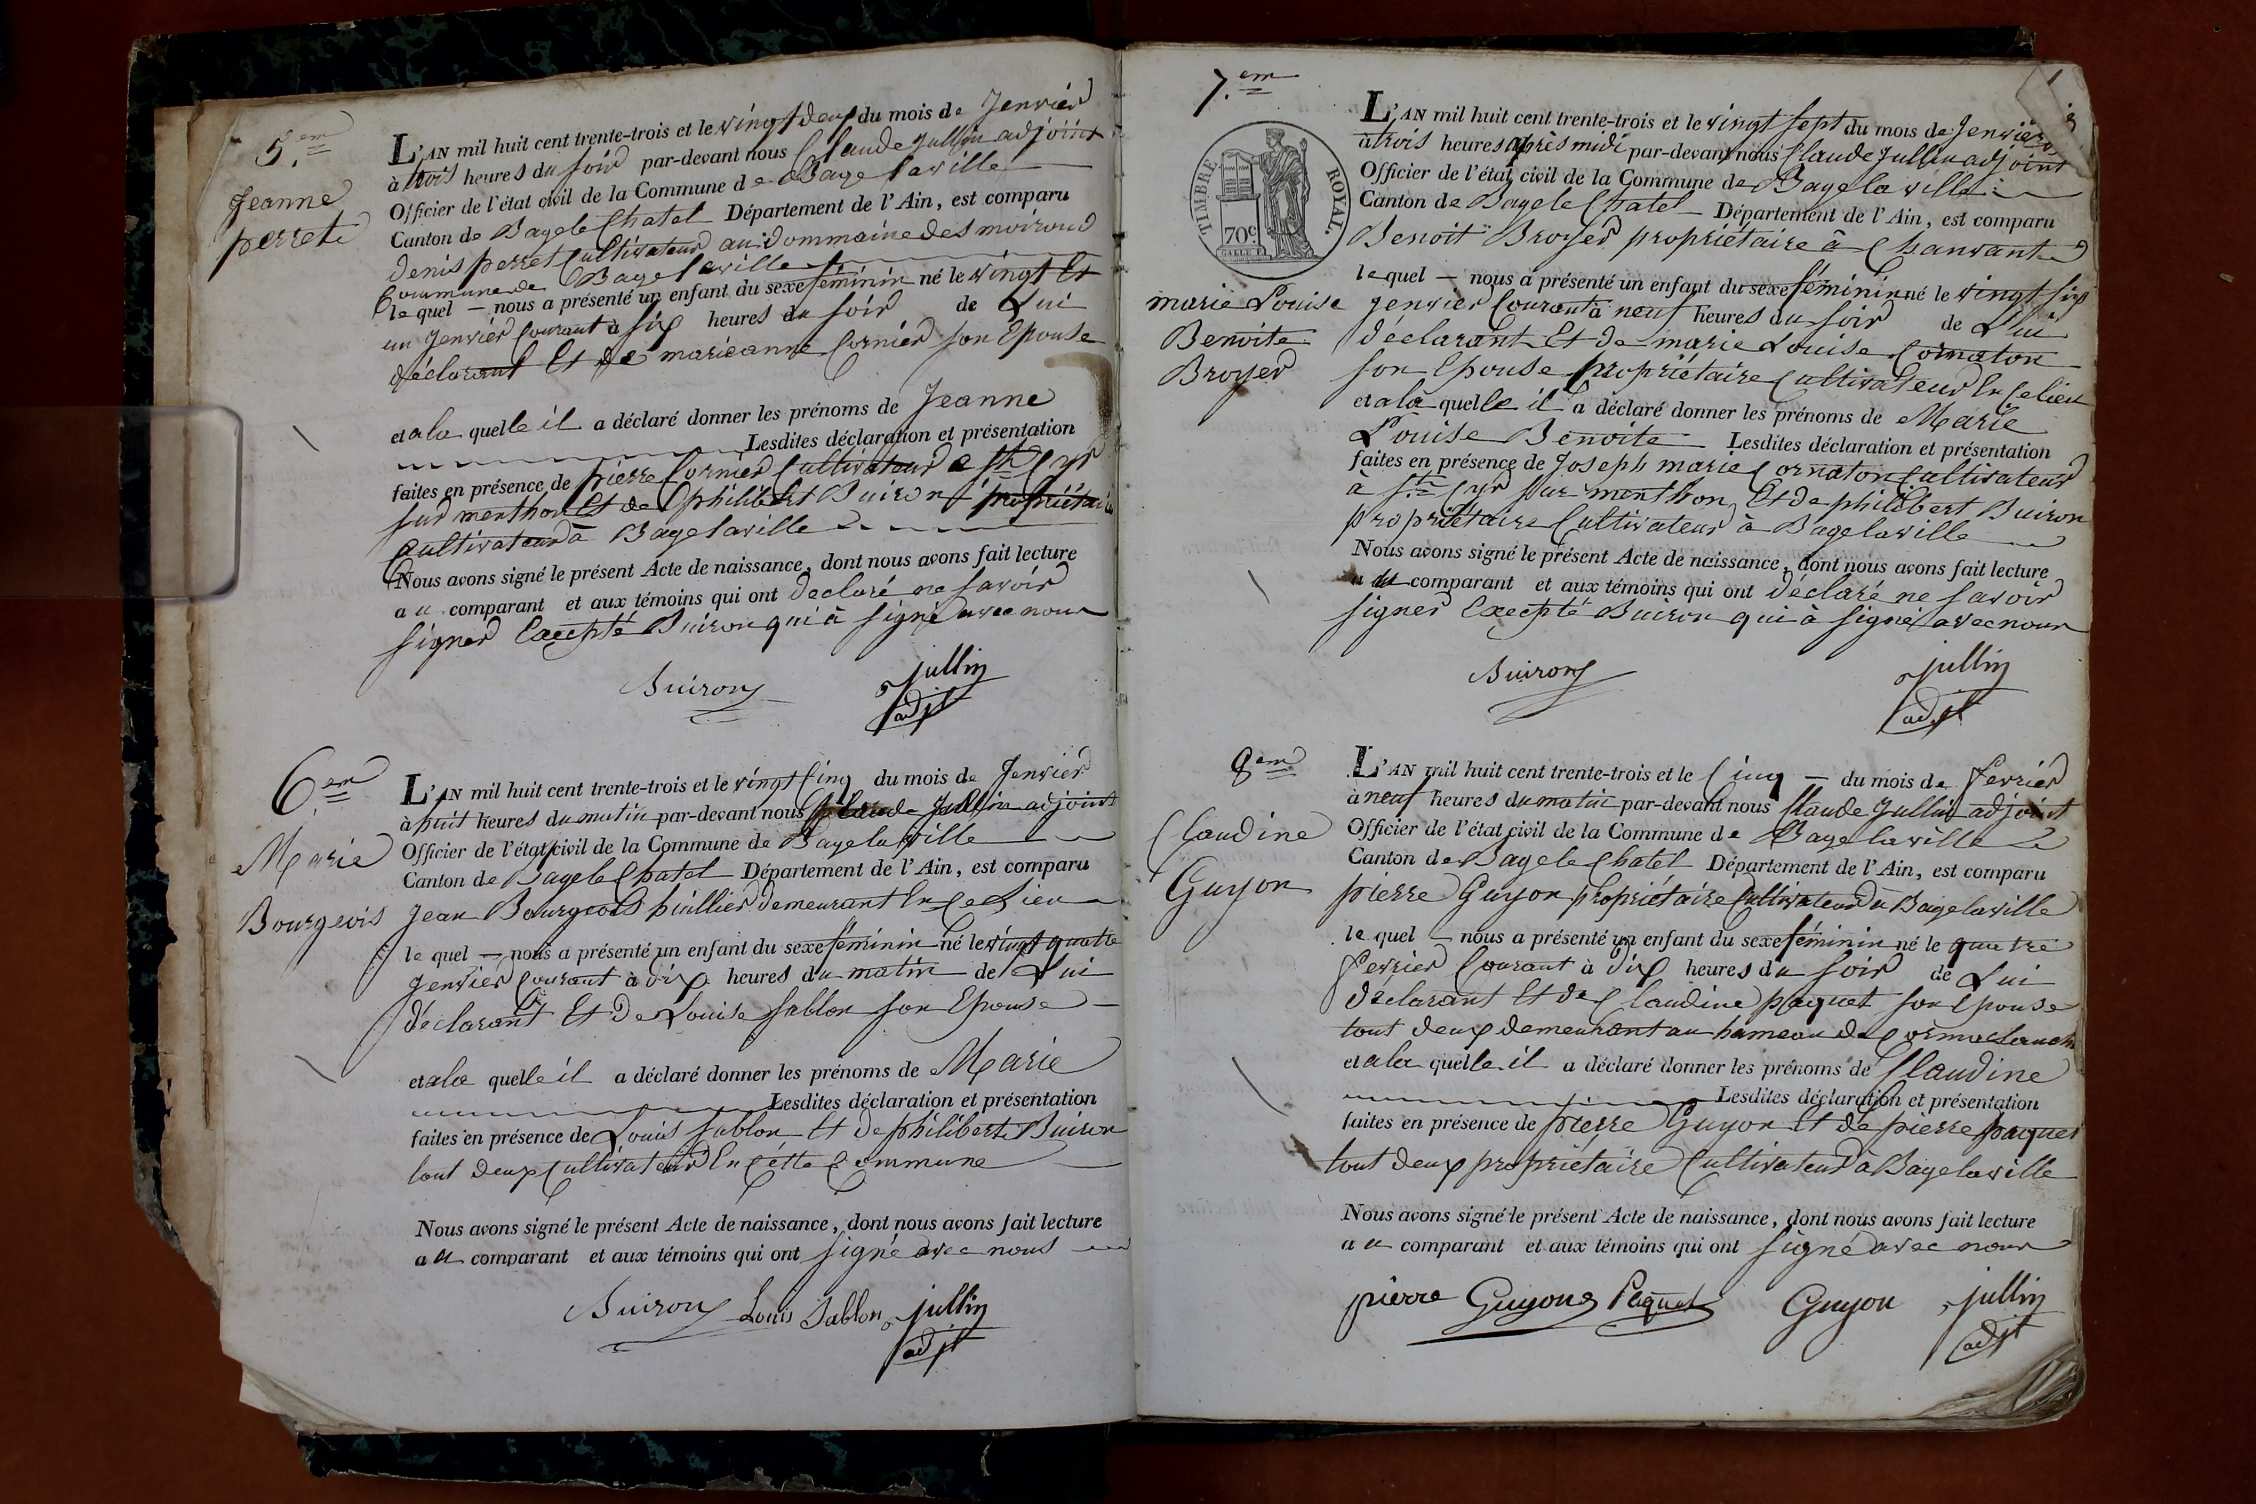 5.em
Jeanne
perret
L'AN mil huit cent trente-trois et le vingt deux du mois de Jenvier
à trois heures du soir par-devant nous Claude Jullin adjoint
Officier de l'état civil de la Commune de Bage laville
Canton de Bagele Chatel Département de l'Ain, est comparu
denis perret Cultivateur au dommaine des moirond
Commune de Bage laville
le quel — nous a présenté un enfant du sexe féminin né le vingt Et
un Jenvier Courant à six heures du soir de Lui
déclarant Et de marieanne Cornier son Epouse
et a la quelle il a déclaré donner les prénoms de Jeanne
Lesdites déclaration et présentation
faites en présence de pierre Cornier Cultivateur a St Cyr
sur menthon Et de philibert Buiron propriétaire
Cultivateur à Bage laville
Nous avons signé le présent Acte de naissance, dont nous avons fait lecture
au comparant et aux témoins qui ont declaré ne savoir
signer Excepté Buiron qui à signé avec nous
Buiron jullin
adjt
6.em
Marie
Bourgeois
L'AN mil huit cent trente-trois et le vingt Cinq du mois de Jenvier
à huit heures du matin par-devant nous Claude Jullin adjoint
Officier de l'état civil de la Commune de Bage laville
Canton de Bagele Chatel Département de l'Ain, est comparu
Jean Bourgeois huillier demeurant En Ce Lieu
le quel — nous a présenté un enfant du sexe féminin né le vingt quatre
Jenvier Courant à dix heures du matin de Lui
déclarant Et de Louise Sablon son Epouse
et a la quelle il a déclaré donner les prénoms de Marie
Lesdites déclaration et présentation
faites en présence de Louis Sablon Et de philibert Buiron
tout deux Cultivateur En Cette Commune
Nous avons signé le présent Acte de naissance, dont nous avons fait lecture
au comparant et aux témoins qui ont signé avec nous
Buiron Louis Sablon jullin
adjt
7.em
TIMBRE ROYAL
70c
marie Louise
Benoite
Broyer
L'AN mil huit cent trente-trois et le vingt sept du mois de Jenvier
à trois heures après midi par-devant nous Claude Jullin adjoint
Officier de l'état civil de la Commune de Bage la ville
Canton de Bagele Chatel — Département de l'Ain, est comparu
Benoit Broyer propriétaire à Chanvant
le quel — nous a présenté un enfant du sexe féminin né le vingt six
jenvier Courant à neuf heures du soir de Lui
déclarant Et de marie Louise Cornaton
son Epouse propriétaire Cultivateur En Ce lieu
et a la quelle il a déclaré donner les prénoms de Marie
Louise Benoite Lesdites déclaration et présentation
faites en présence de Joseph marie Cornaton Cultivateur
à St Cyr sur menthon Et de philibert Buiron
propriétaire Cultivateur à Bage laville
Nous avons signé le présent Acte de naissance, dont nous avons fait lecture
au comparant et aux témoins qui ont déclaré ne savoir
signer Excepté Buiron qui à signé avec nous
Buiron jullin
adjt
8em
Claudine
Guyon
L'AN mil huit cent trente-trois et le Cinq — du mois de fevrier
à neuf heures du matin par-devant nous Claude Jullin adjoint
Officier de l'état civil de la Commune de Bage laville
Canton de Bagele Chatel Département de l'Ain, est comparu
pierre Guyon propriétaire Cultivateur à Bage laville
le quel — nous a présenté un enfant du sexe féminin né le quatre
fevrier Courant à dix heures du soir de Lui
déclarant Et de Claudine paquet son Epouse
tout deux demeurant au hameau de
et a la quelle il a déclaré donner les prénoms de Claudine
Lesdites déclaration et présentation
faites en présence de pierre Guyon Et de pierre paquet
tout deux propriétaire Cultivateur à Bage laville
Nous avons signé le présent Acte de naissance, dont nous avons fait lecture
au comparant et aux témoins qui ont signé avec nous
pierre Guyon Paquet Guyon jullin
adjt